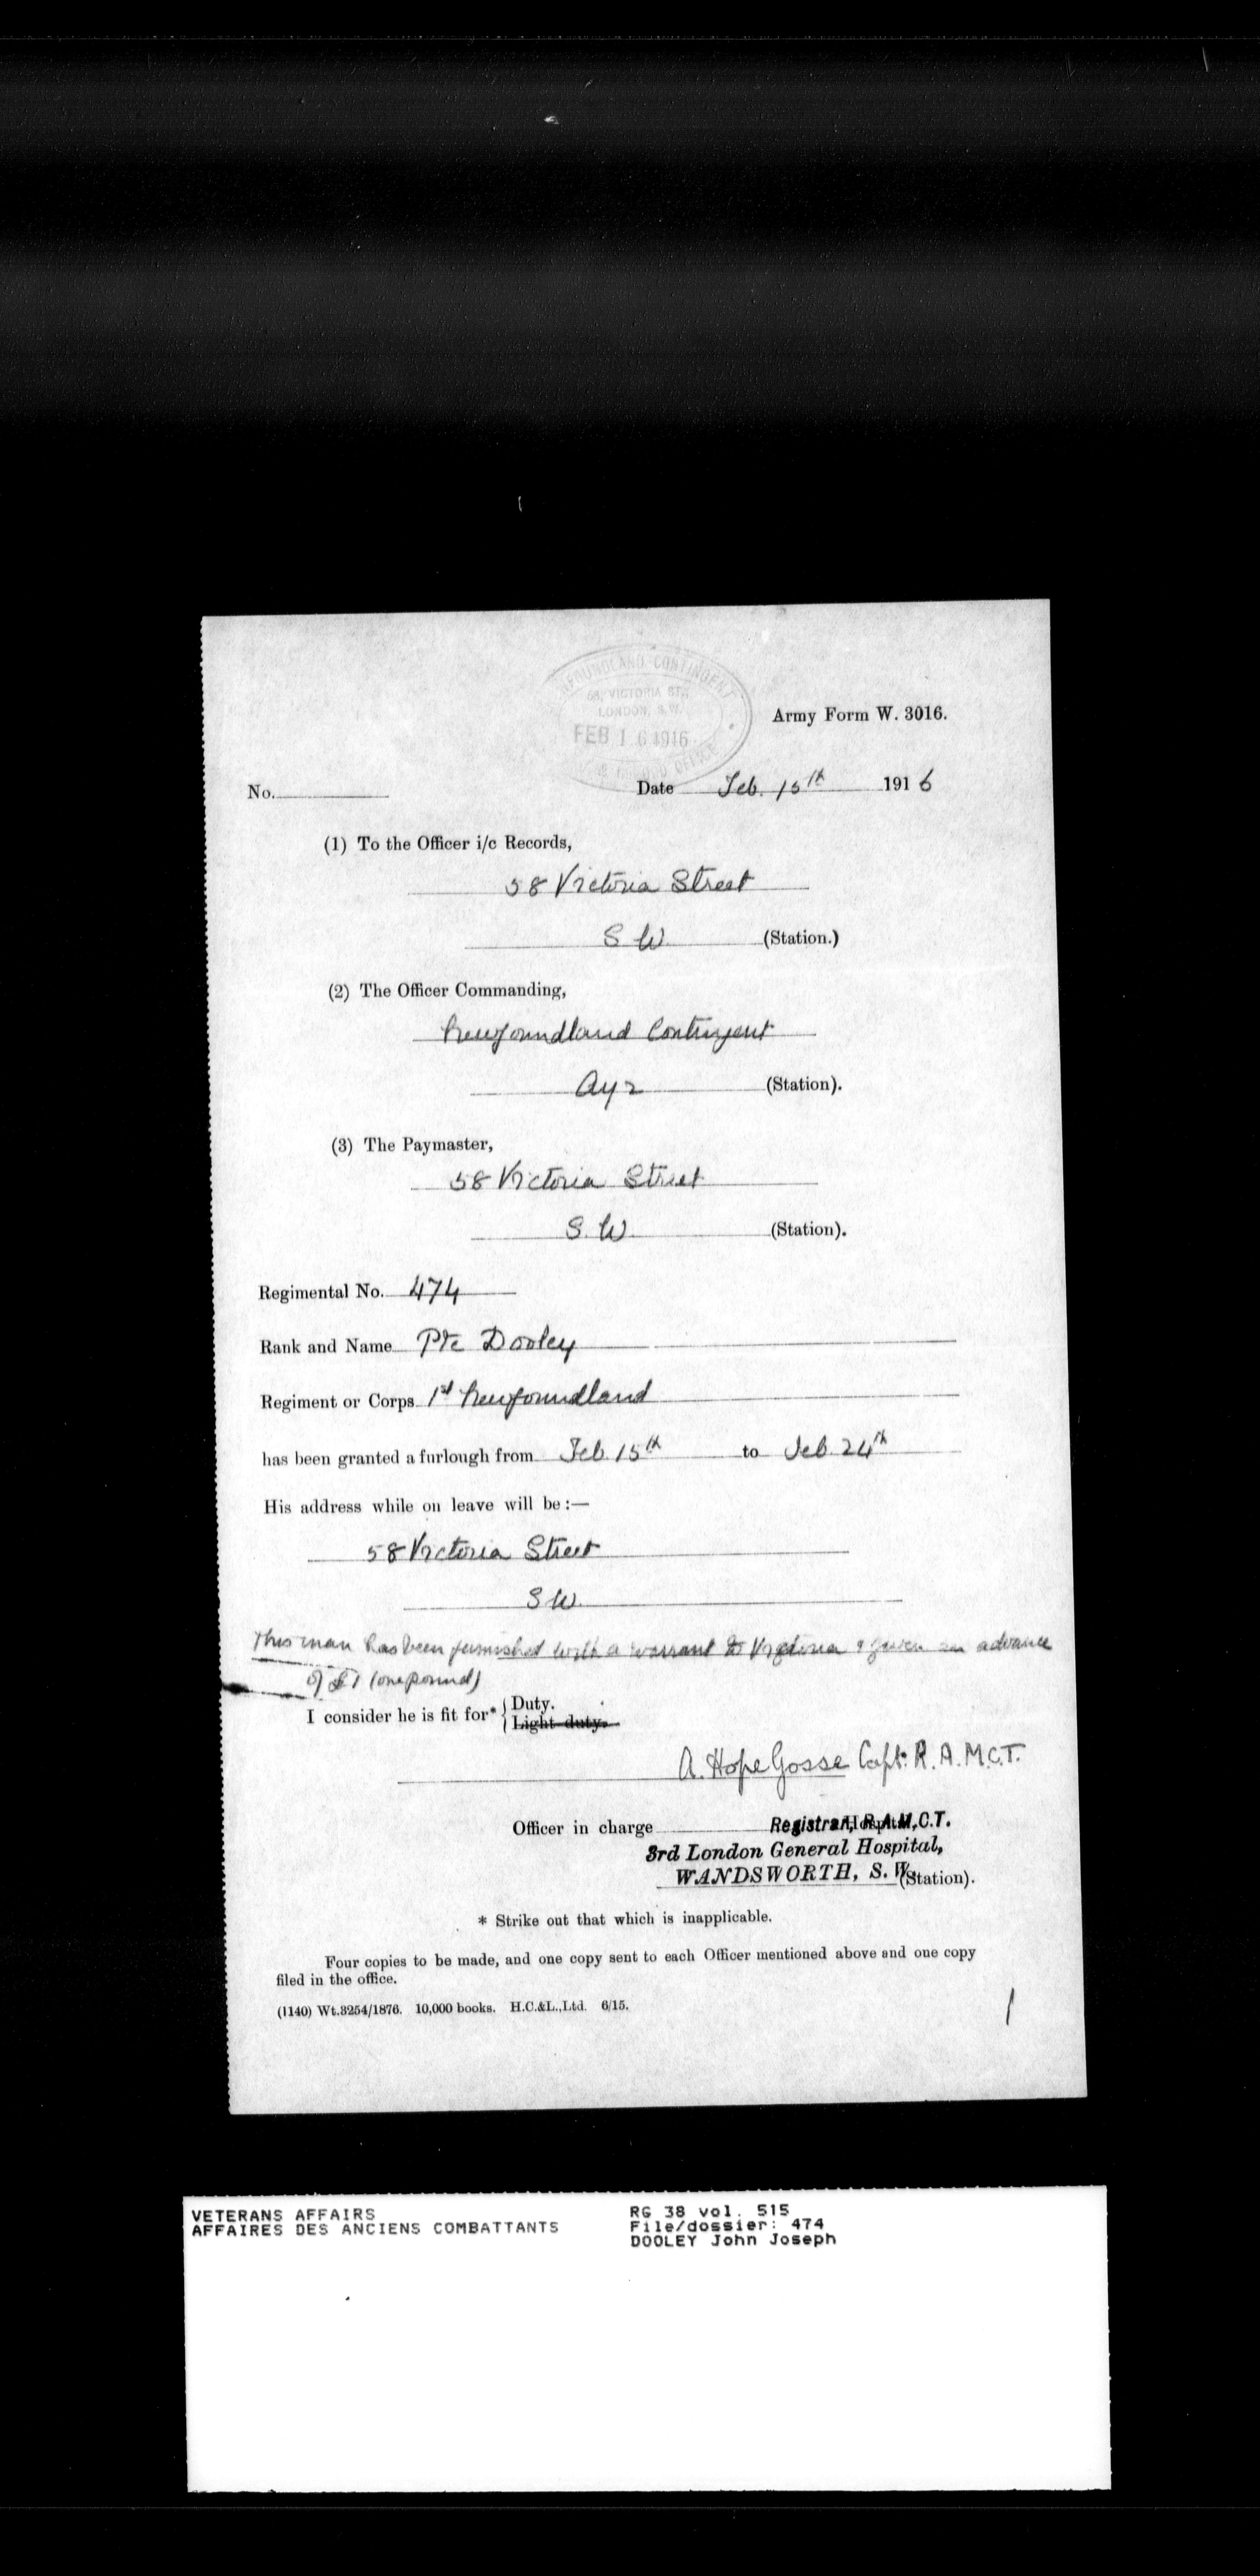 NEWFOUNDLAND CONTINGENT
58, VICTORIA ST.,
LONDON, S.W.
FEB 16 1916
& RECORD OFFICE
Army Form W. 3016.
No. Date Feb. 15th 1916
(1) To the Officer i/c Records,
58 Victoria Street
S W (Station.)
(2) The Officer Commanding,
Newfoundland Contingent
Ayr (Station).
(3) The Paymaster,
58 Victoria Street
S. W (Station).
Regimental No. 474
Rank and Name Pte Dooley
Regiment or Corps 1st Newfoundland
has been granted a furlough from Feb. 15th to Feb. 24th
His address while on leave will be:—
58 Victoria Street
S W.
This man has been furnished with a warrant to Victoria & given an advance
of £1 (one pound)
I consider he is fit for* { Duty.
Light duty.
A. Hope Gosse Capt: R.A.M.C.T.
Officer in charge Hospital, Registrar, R.A.M.C.T.
3rd London General Hospital,
WANDSWORTH, S. W. (Station).
* Strike out that which is inapplicable.
Four copies to be made, and one copy sent to each Officer mentioned above and one copy
filed in the office.
(1140) Wt.3254/1876. 10,000 books. H.C.&L.,Ltd. 6/15.
1
VETERANS AFFAIRS RG 38 vol. 515
AFFAIRES DES ANCIENS COMBATTANTS File/dossier: 474
DOOLEY John Joseph